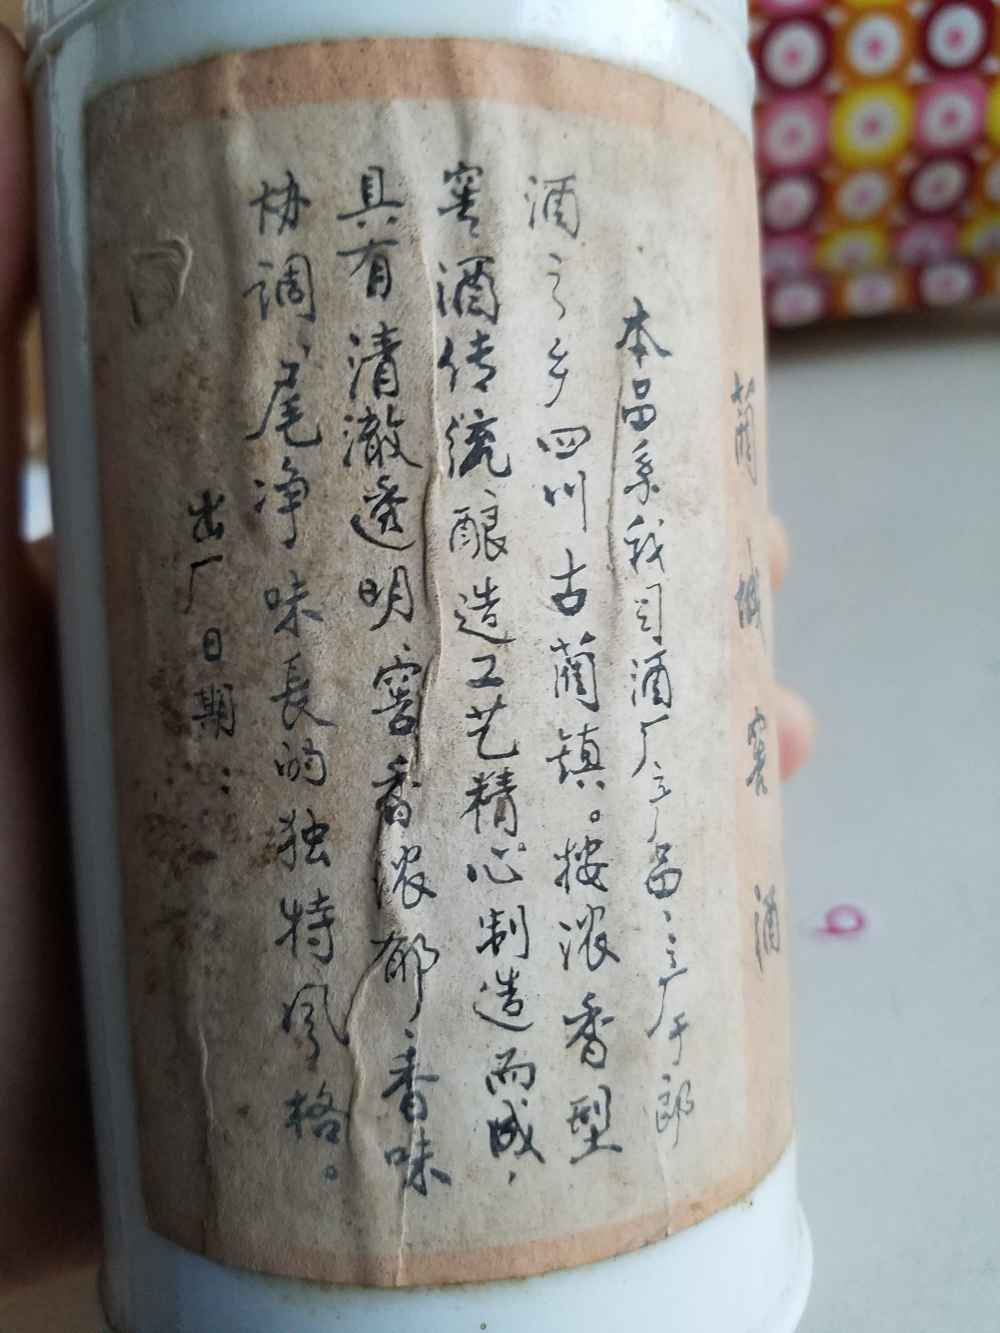 蔺城窖酒
本品系我司酒厂产品产于郎
酒之乡四川古蔺镇。按浓香型
窖酒传统酿造工艺精心制造而成，
具有清澈透明、窖香浓郁、香味
协调、尾净味長的独特风格。
出厂日期：